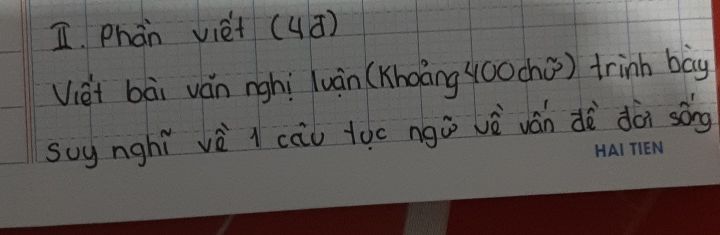 II. Phần viết (4đ)
Viết bài văn nghị luận (Khoảng 400 chữ) trình bày
suy nghĩ về 1 câu tục ngữ về vấn đề đời sống
HAI TIEN